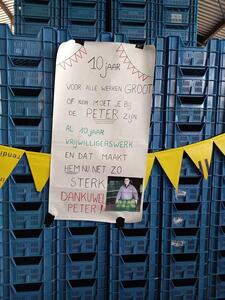 10 jaar
VOOR ALLE WERKEN GROOT
OF KLEIN MOET JE BIJ
DE PETER ZIJN
AL 10 JAAR
VRIJWILLIGERSWERK
EN DAT MAAKT
HEM NU NET ZO
STERK
DANKUWEL
PETER!